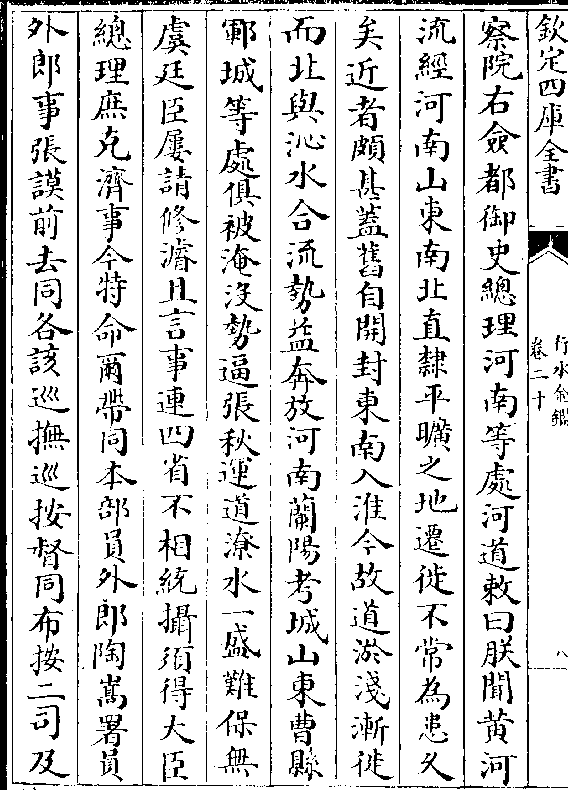 欽定四庫全書
行水金鑑
卷二十
八
察院右僉都御史總理河南等處河道敕曰朕聞黄河
流經河南山東南北直隸平曠之地遷徙不常為患久
矣近者頗甚蓋舊自開封東南入淮今故道淤淺漸徙
而北與沁水合流勢益奔放河南蘭陽考城山東曹縣
鄆城等處俱被淹沒勢逼張秋運道潦水一盛難保無
虞廷臣屢請修濬且言事連四省不相統攝須得大臣
總理庶克濟事今特命爾帶同本部員外郎陶嵩署員
外郎事張謨前去同各該巡撫巡按督同布按二司及